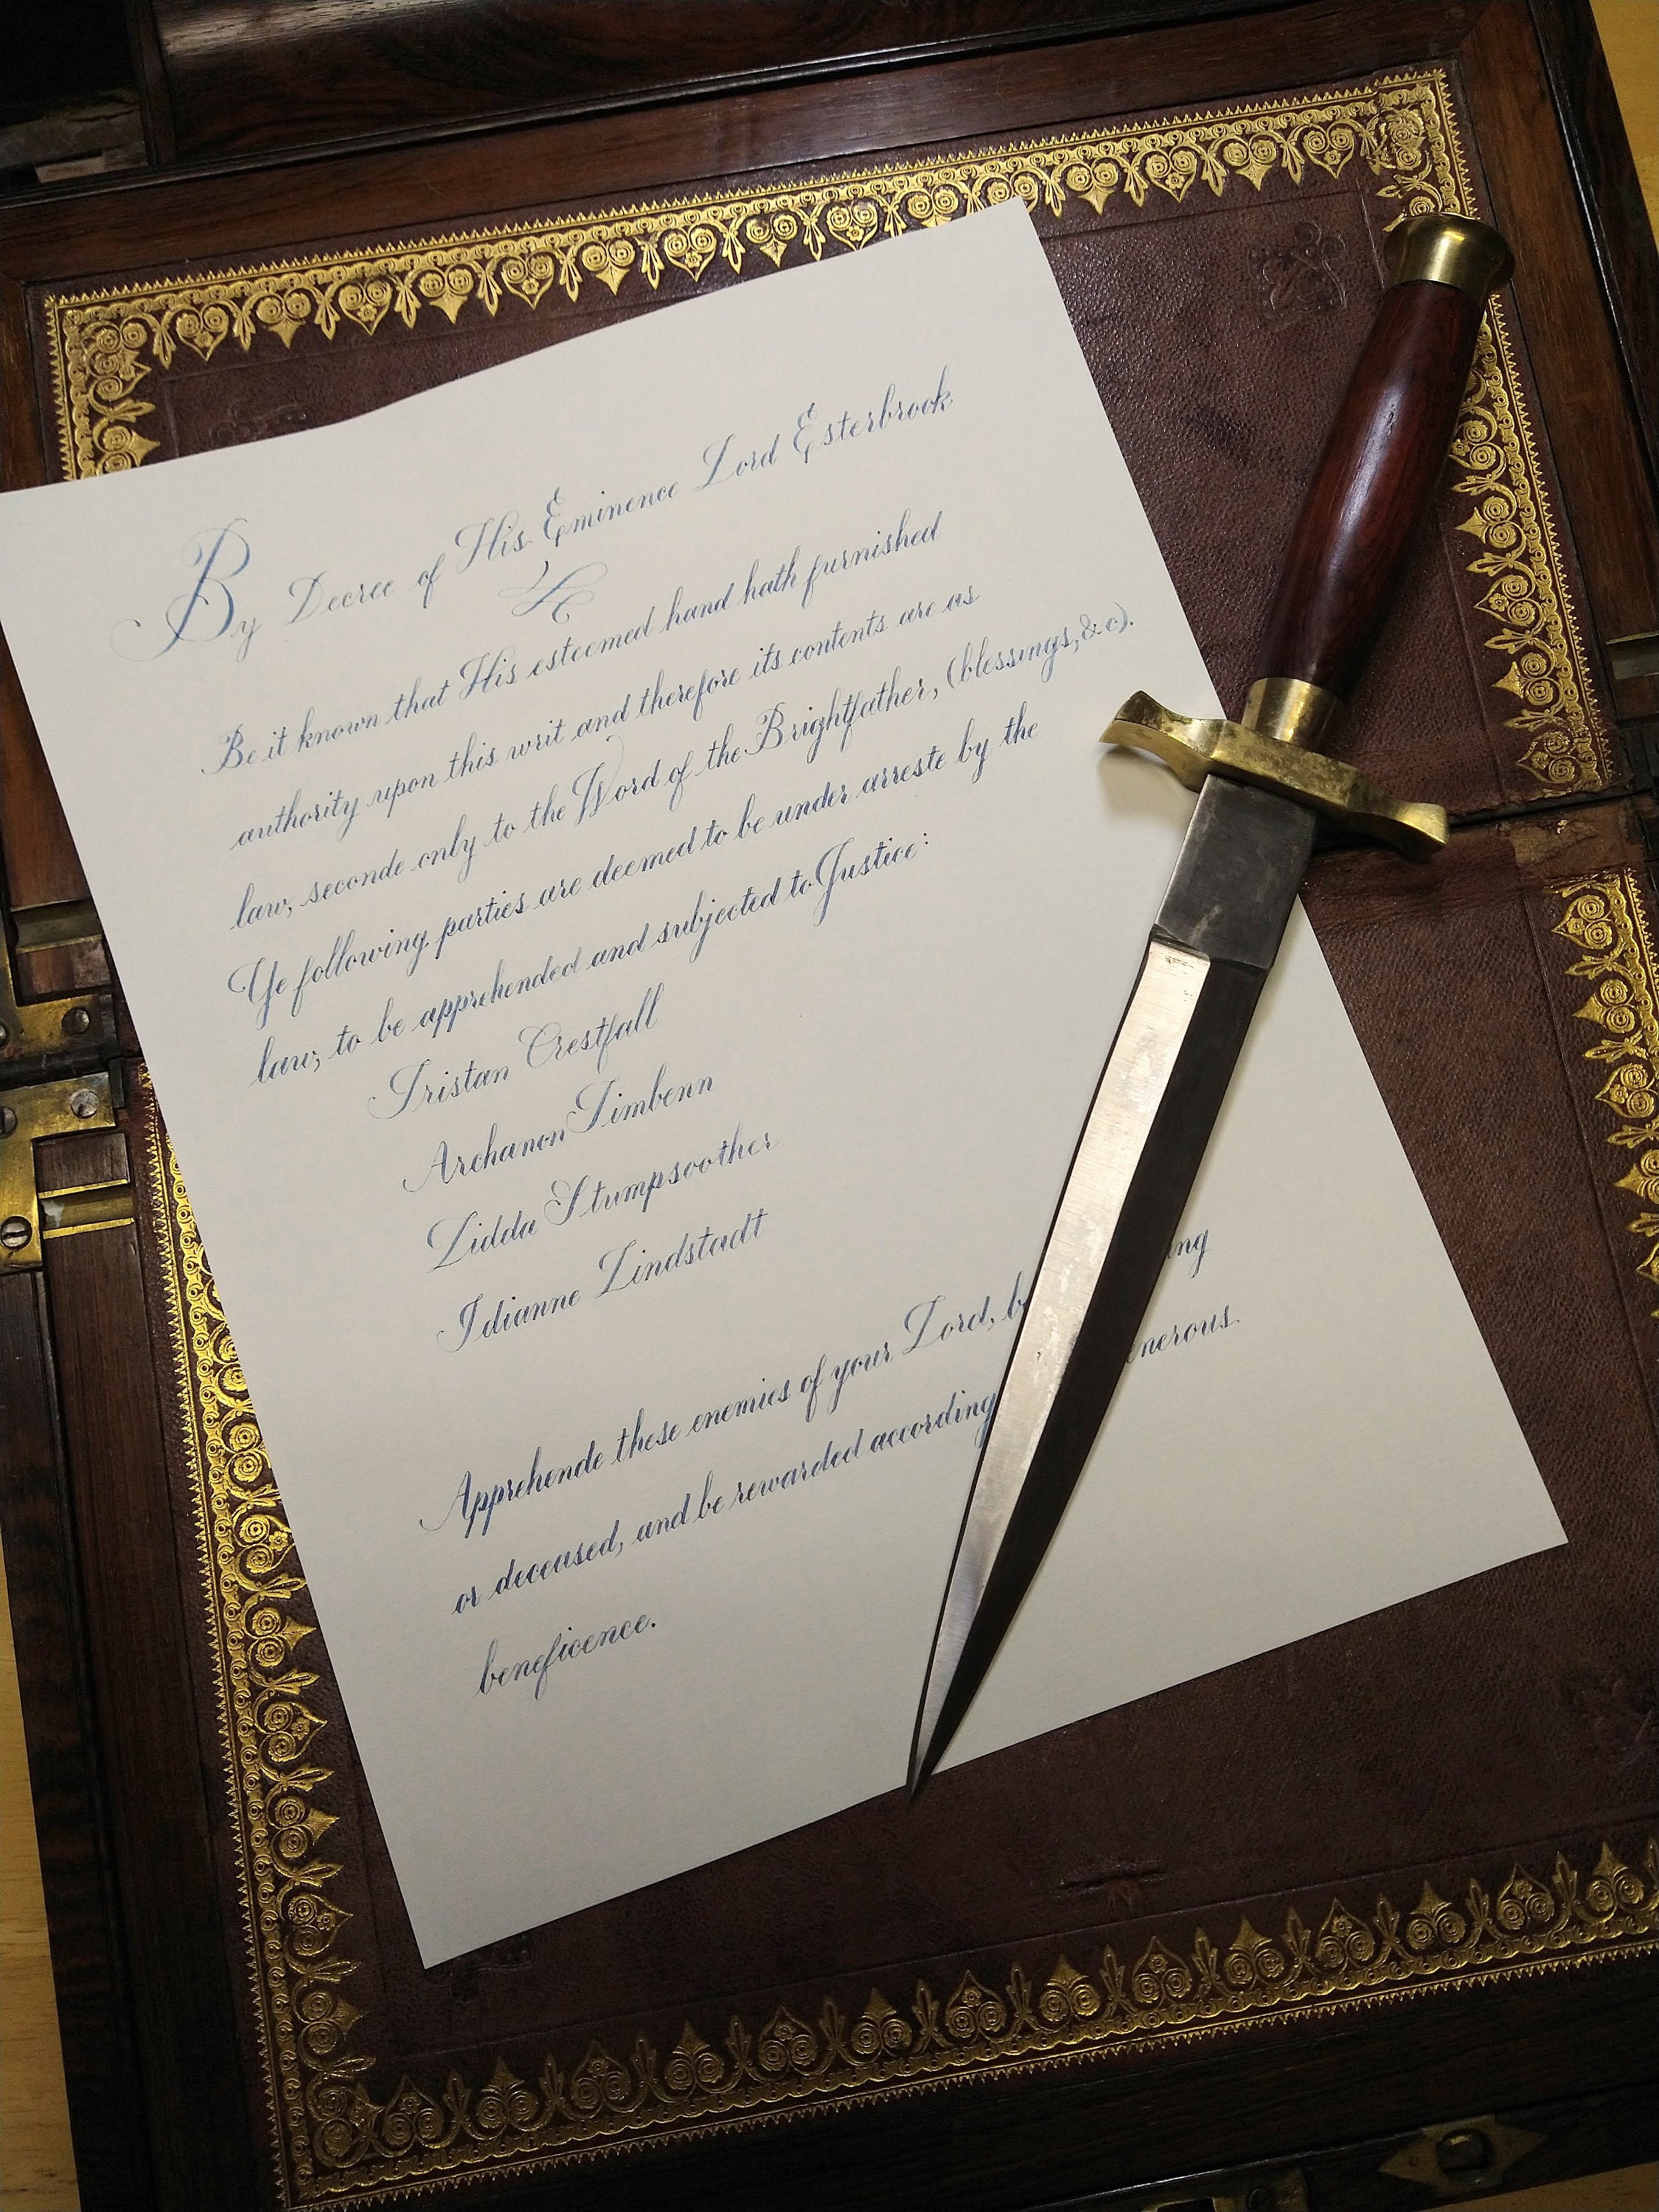 By Decree of His Eminence Lord Esterbrook
Be it known that His esteemed hand hath furnished
authority upon this writ and therefore its contents are as
law, seconde only to the Word of the Brightfather, (blessings, &c).
Ye following parties are deemed to be under arreste by the
law, to be apprehended and subjected to Justice:
Tristan Crestfall
Archanon Timbenn
Lidda Stumpsoother
Idianne Lindstadt
Apprehende these enemies of your Lord, b ng
or deceased, and be rewarded according enerous
beneficence.